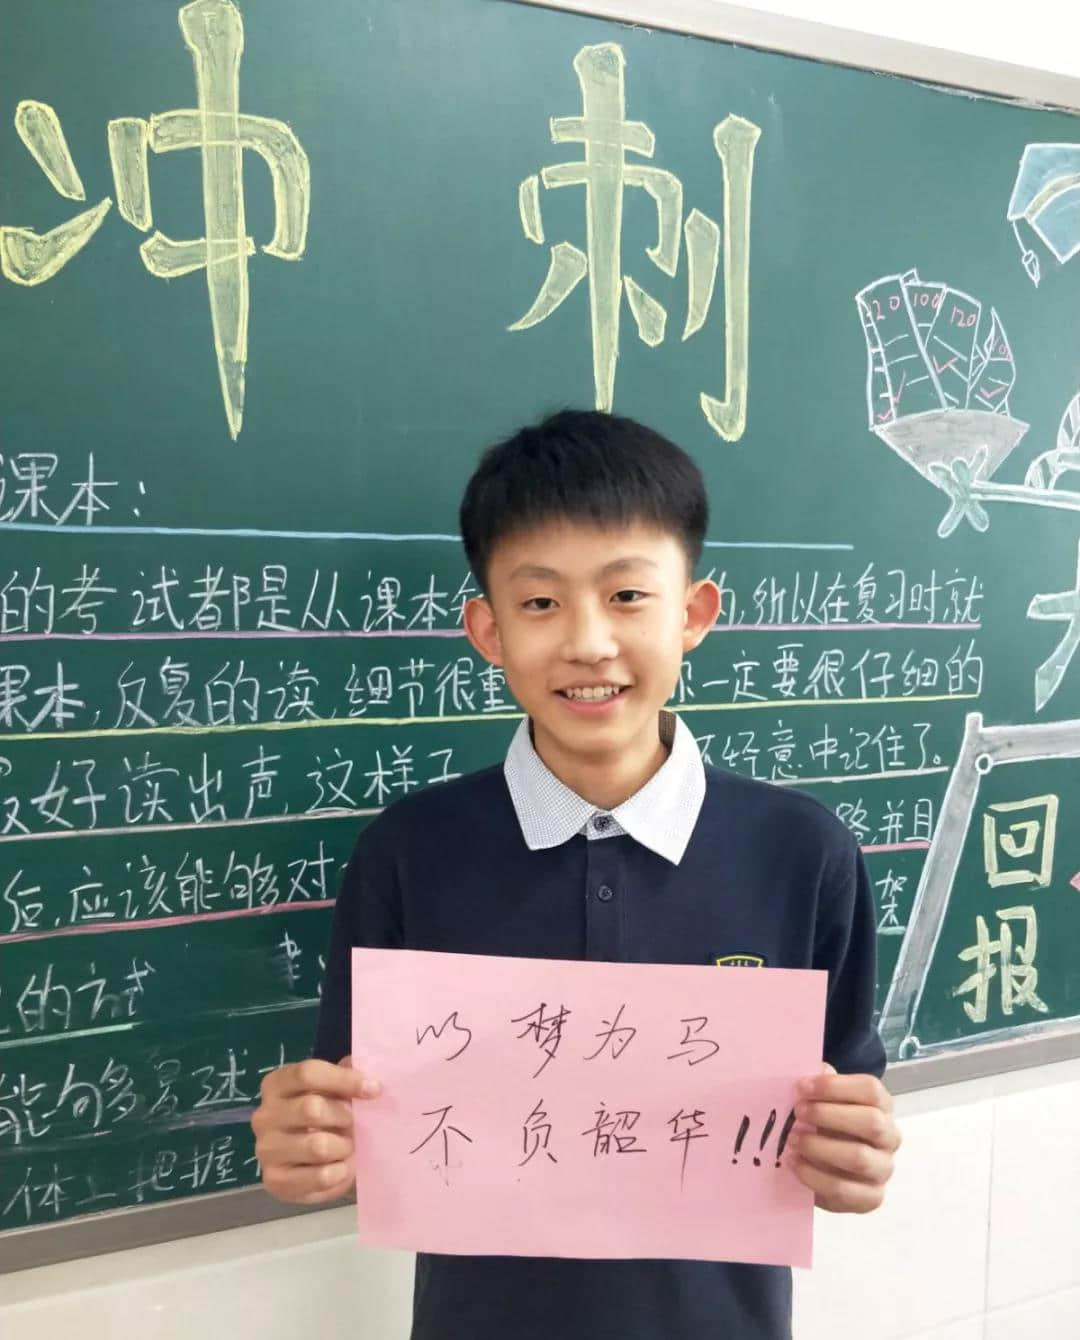 冲刺
课本：
的考试都是从课本
的，所以在复习时就
课本，反复的读，细节很重
一定要很仔细的
好读出声，这样子
不经意中记住了。
路，并且
后，应该能够对
架
的方式
能够复述
体上把握
120 100 120
回报
以梦为马
不负韶华!!!